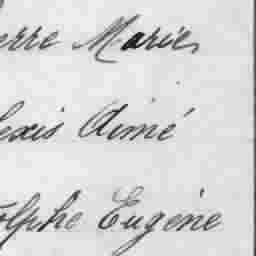 erre Marie,
lexis Aimé
olphe Eugène